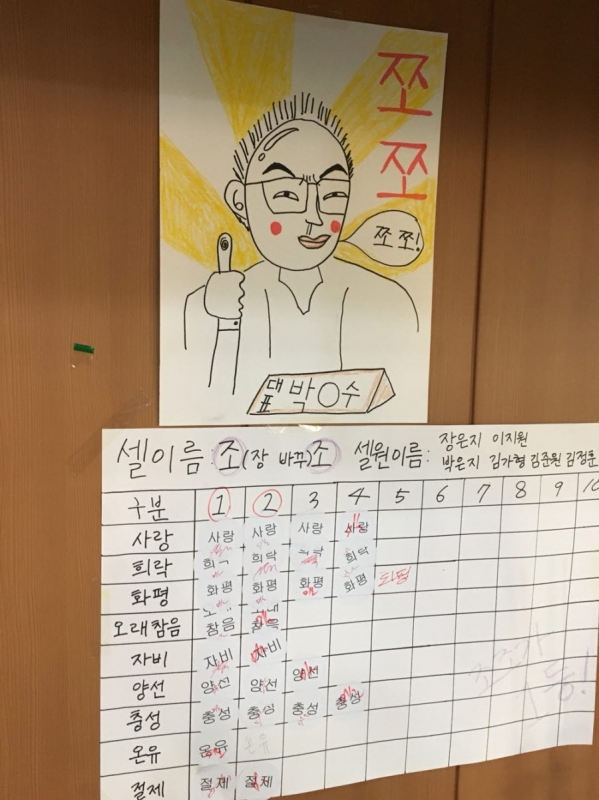 쪼
쪼
쪼쪼!
대표 박○수
셀이름: 조(장 바꾸)조 셀원이름: 장은지 이지원
박은지 김가형 김준원 김정훈
구분 1 2 3 4 5 6 7 8 9 10
사랑 사랑 사랑 사랑 사랑
희락 희락 희락
화평 화평 화평 화평 화평 화평
오래참음 참음 참음
자비 자비 자비
양선 양선 양선 양선
충성 충성 충성 충성 충성
온유 온유 온유
절제 절제 절제